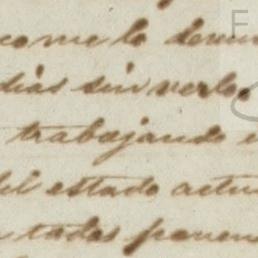 como lo demu
dias sin verlo.
trabajando e
del estado actu
todas ponen